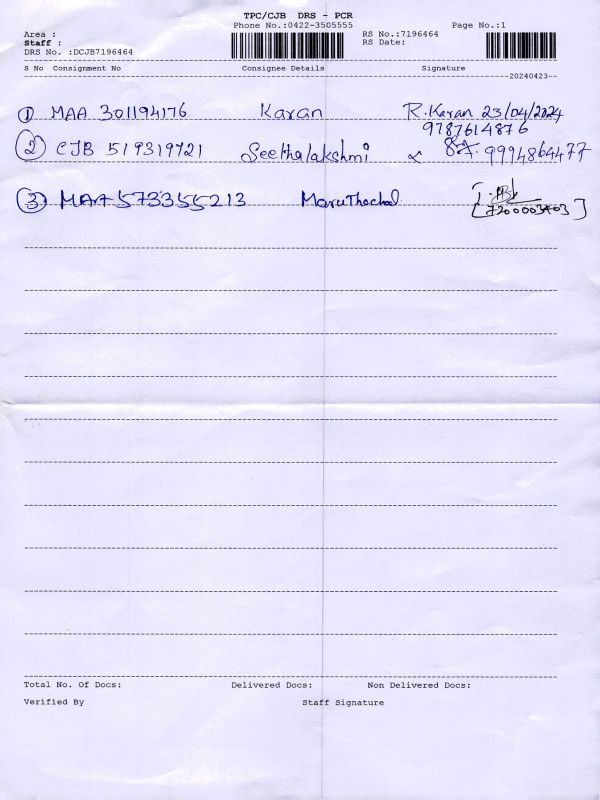 TPC/CJB DRS - PCR
Phone No.:0422-3505555 Page No.:1
Area : RS No.:7196464
Staff : RS Date:
DRS No. :DCJB7196464
S No Consignment No Consignee Details Signature
20240423
1 MAA 301194176 Karan R.Karan 23/04/2024
9787614876
2 CJB 519319721 Seethalakshmi 9994864477
3 MAA 573355213 Maruthachal
[7200003403]
Total No. Of Docs: Delivered Docs: Non Delivered Docs:
Verified By Staff Signature